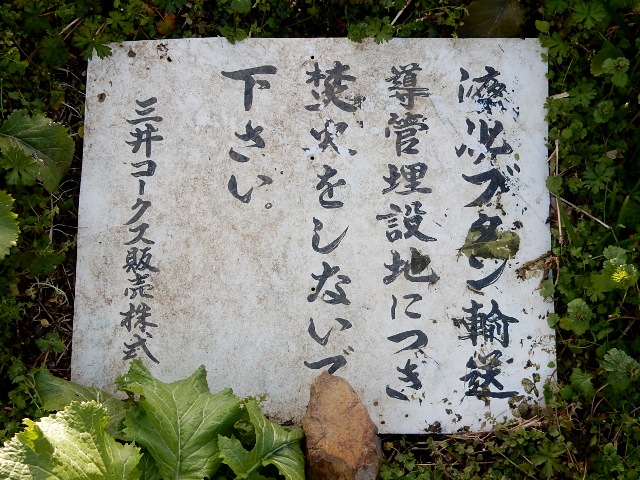 液化ブタン輸送
導管埋設地につき
焚火をしないで
下さい。
三井コークス販売株式